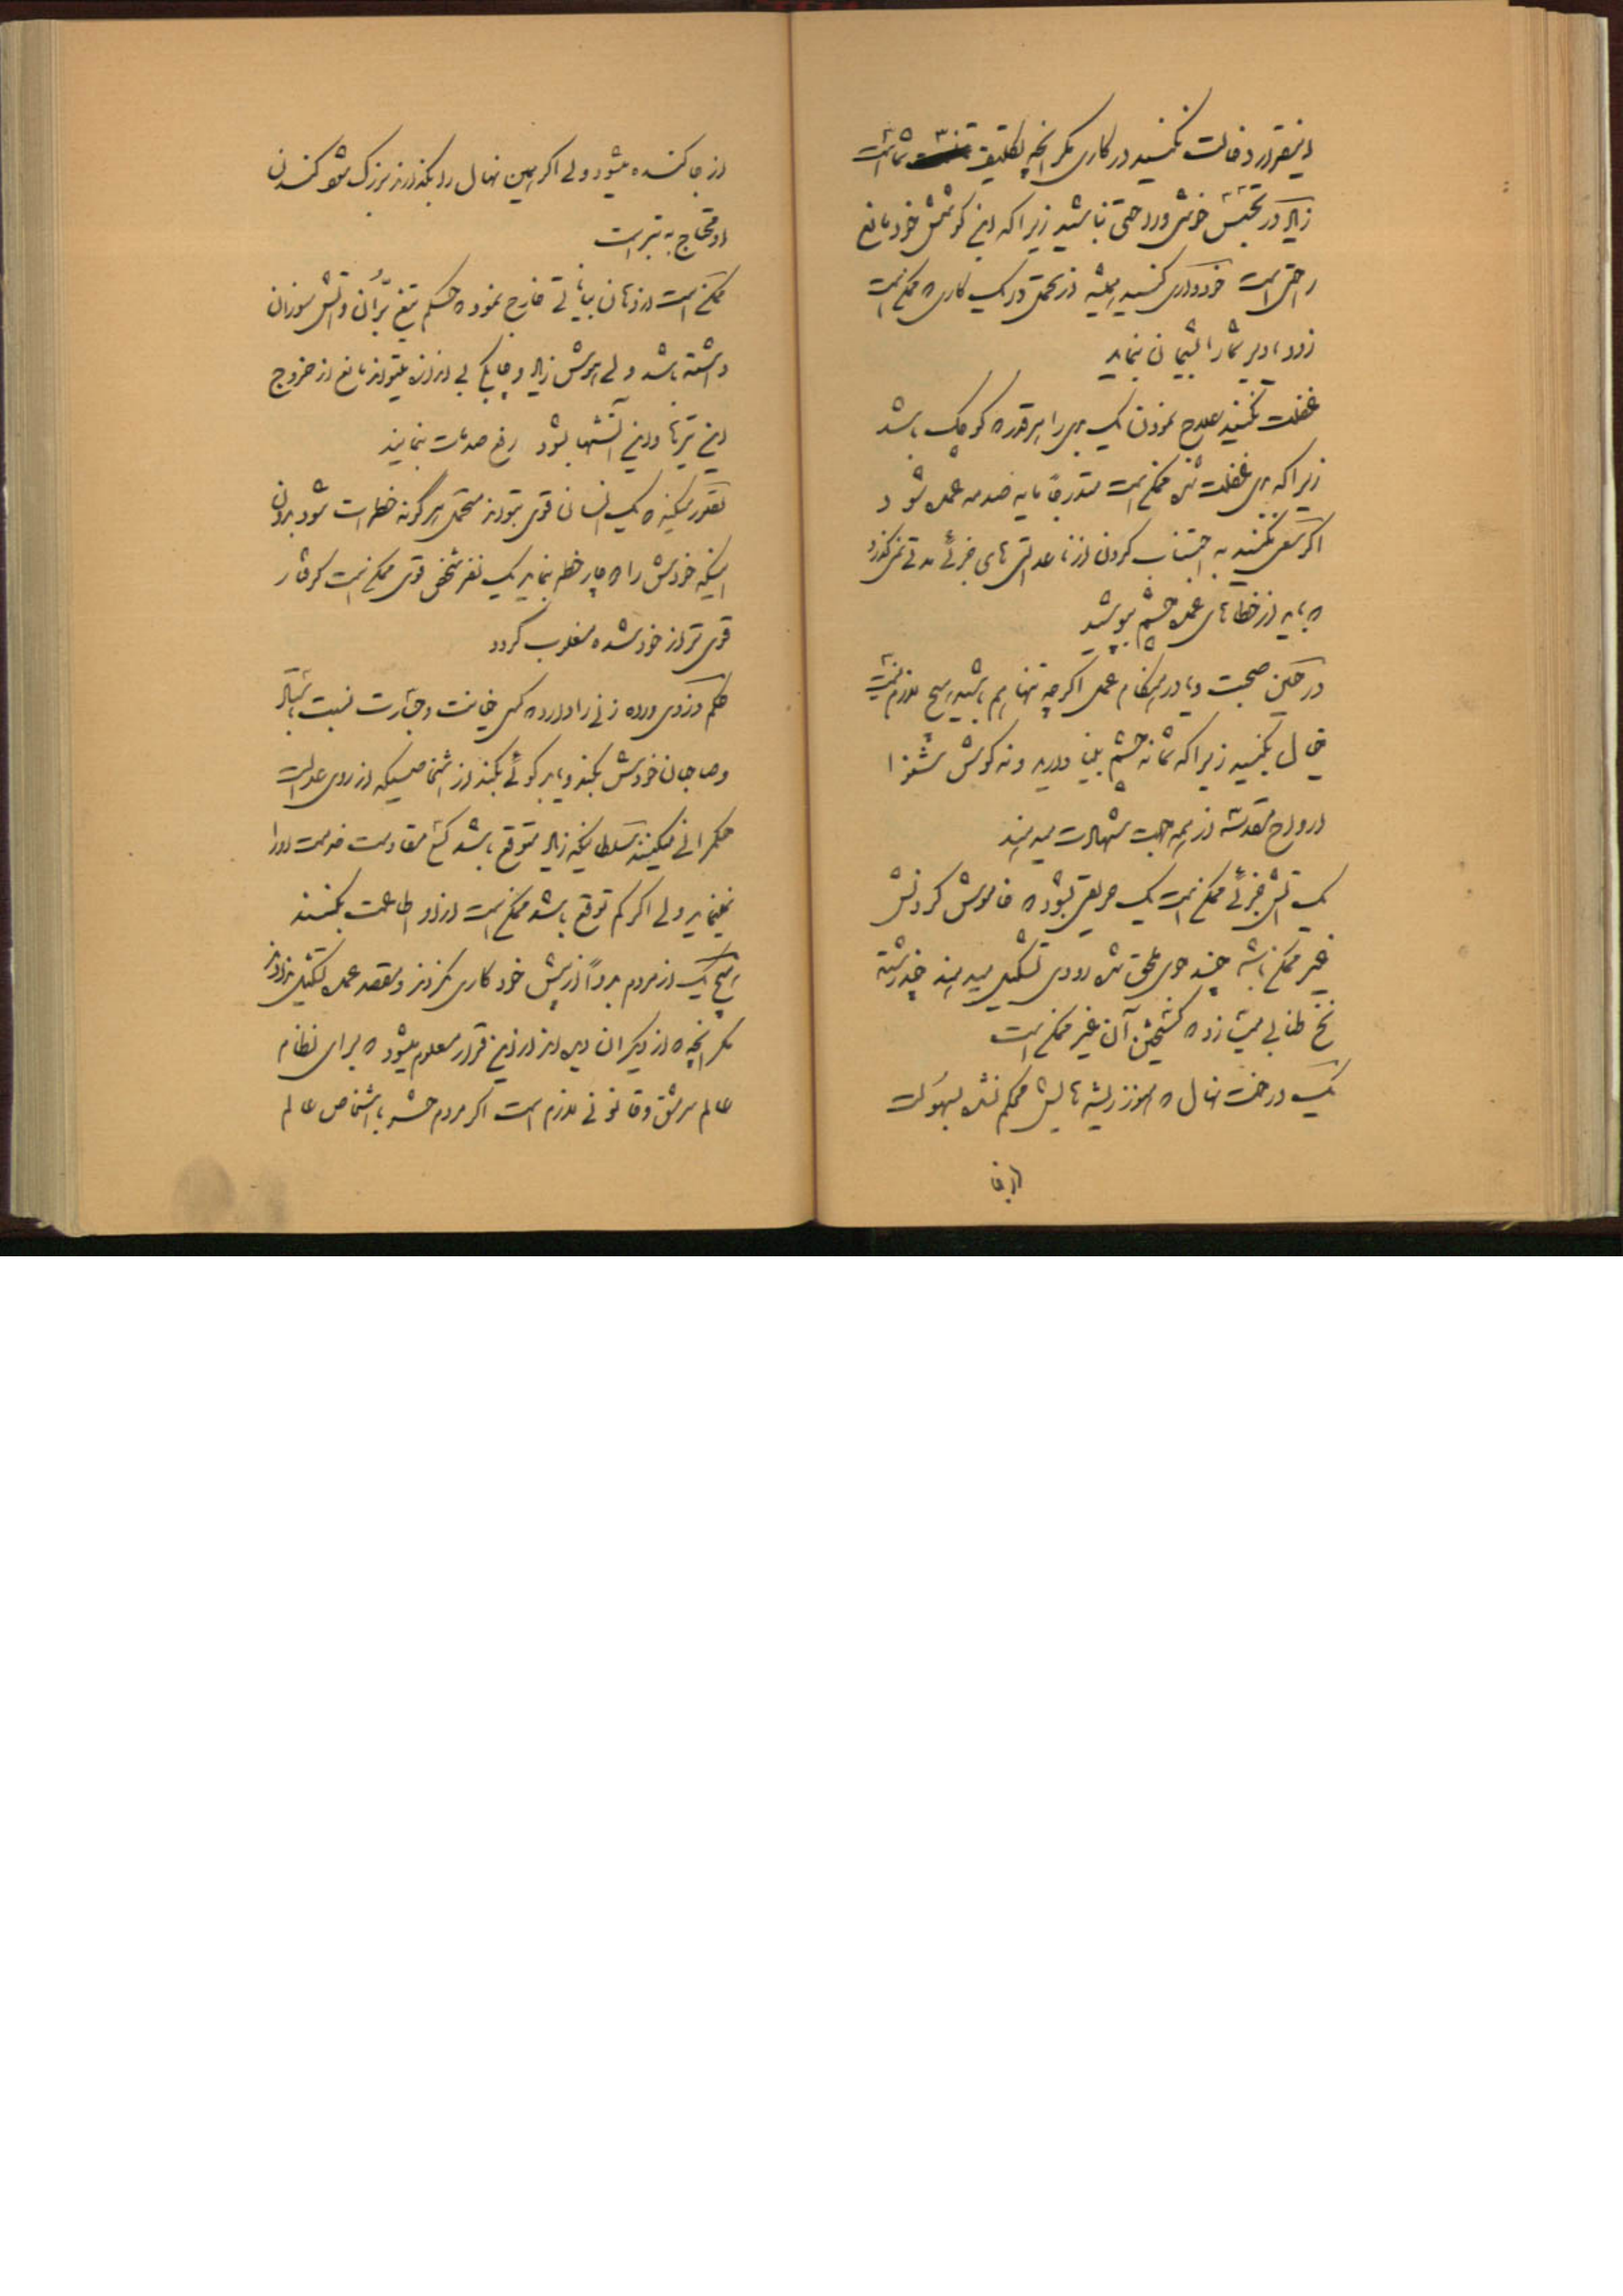 اینقدر دخالت نکنید در کاری مگر آنچه تکلیف شما است
زیاد در تجسس خوشی و راحتی نباشید زیرا که این کوشش خود مانع
راحتی است خودداری کنید همیشه از تحمل در یک کاری که ممکن است
زود یا دیر شما را پشیمان بنماید
غفلت نکنید علاج نمودن یک بدی را هر قدر که کوچک باشد
زیرا که بدی غفلت شده ممکن است متدرجاً مایه صدمه عمده شود
اگر سعی نکنید به اجتناب کردن از ناعدالتی های جزئی مدتی نمی‌گذرد
که باید از خطاهای عمده چشم بپوشید
در حین صحبت و یا در هنگام عمل اگرچه تنها هم باشید هیچ لازم نیست
خیال بکنید زیرا که شما نه چشم بینا دارید و نه گوش شنوا
ارواح مقدسه از همه جهت شهادت میدهند
یک آتش جزئی ممکن است یک حریقی بشود که خاموش کردنش
غیر ممکن باشد چند جوی ملحق شده رودی تشکیل میدهند چند رشته
نخ طنابی میسازد که گسیختن آن غیر ممکن است
یک درخت نهال که هنوز ریشه هایش محکم نشده بسهولت
از جا
از جا کنده میشود ولی اگر همین نهال را بگذارند بزرگ شود کندن
او محتاج به تبر است
ممکن است از دهان بیاناتی خارج نمود که حکم تیغ برّان و آتش سوزان
داشته باشد ولی هوش زیاد و چابکی بی اندازه میتواند مانع از خروج
این تیرها و این آتشها بشود رفع صدمات بنمایند
تصور میکنید که یک انسان قوی بتواند متحمل هر گونه خطرات شود بدون
اینکه خودش را دچار خطر بنماید یک نفر شخص قوی ممکن است گرفتار
قوی تر از خود شده مغلوب گردد
حکم دزدی و راهزنی را دارد که کسی خیانت و جسارت نسبت
و صاحبان خودش بکند و یا بدگوئی بکند از اشخاصیکه از روی عدالت
حکمرانی میکنند سلطانیکه زیاد متوقع باشد کسی مقاومت خدمت او را
نمینماید ولی اگر کم توقع باشد ممکن است از او اطاعت بکنند
هیچ یک از مردم بدواً از پیش خود کاری نکردند و مقصد عمده تشکیل ندادند
مگر آنچه که از دیگران دیده‌اند از این قرار معلوم میشود که برای نظام
عالم سرمشق و قانونی لازم است اگر مردم حشر با اشخاص عالم